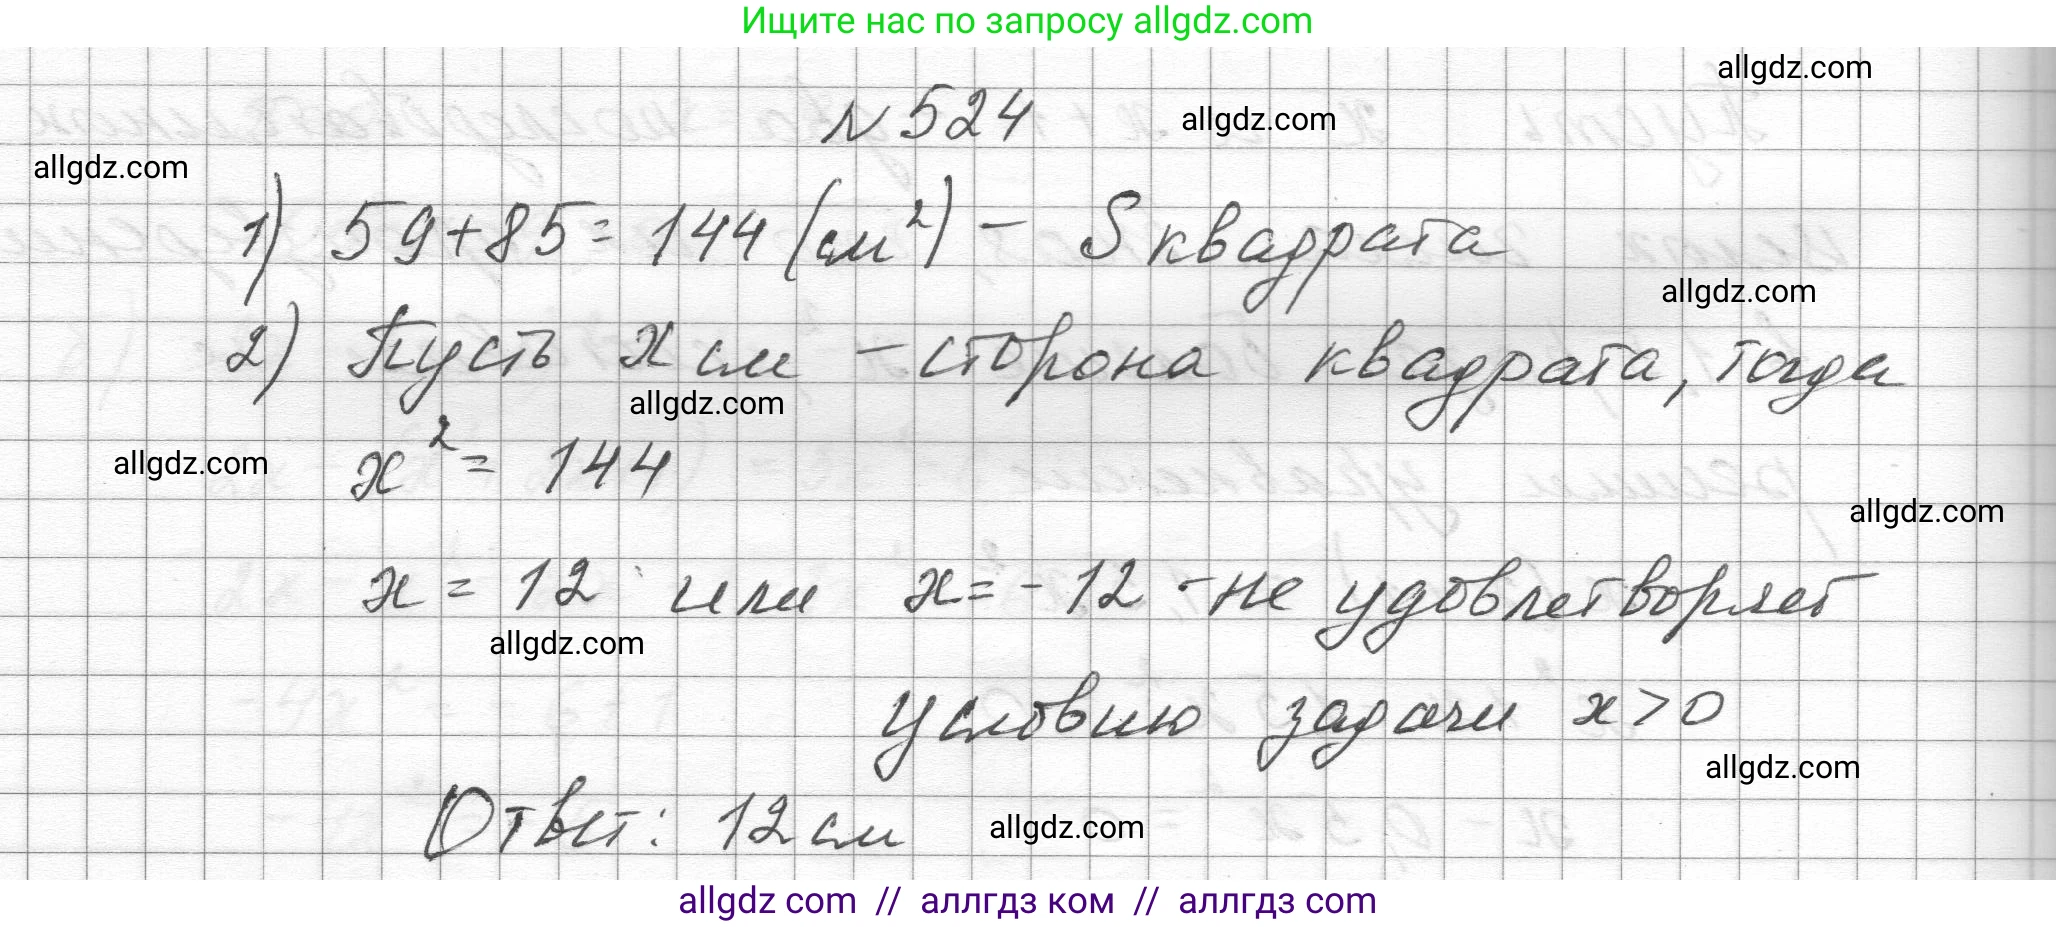 Ищите нас по запросу allgdz.com
allgdz.com
N 524
allgdz.com
allgdz.com
1) 59+85=144(см²) - S квадрата
allgdz.com
2) Пусть x см - сторона квадрата, тогда
allgdz.com
x² = 144
allgdz.com
allgdz.com
x = 12 или x = -12 - не удовлетворяет
allgdz.com
условию задачи x > 0
allgdz.com
Ответ: 12 см
allgdz.com
allgdz com // аллгдз ком // аллгдз com